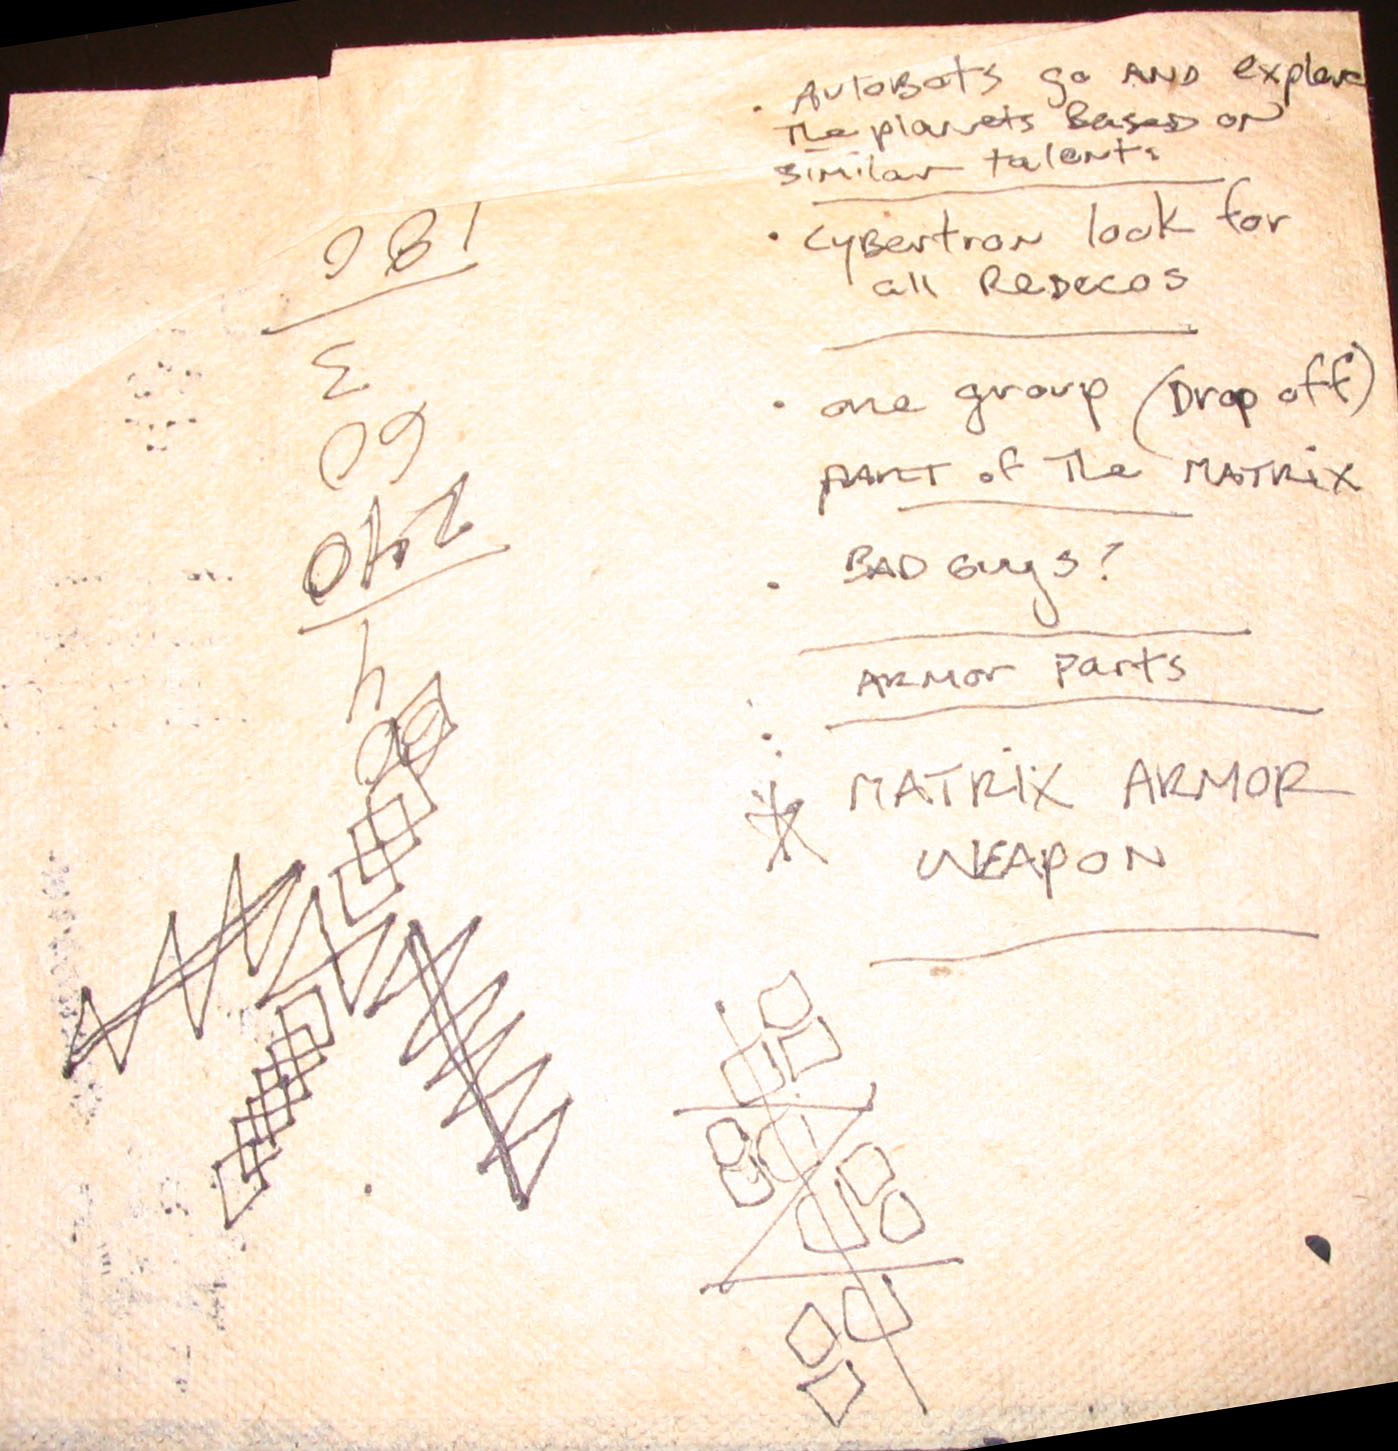 · AutoBots go AND explore
The planets Based on
similar talents
· Cybertron look for
all Redecos
· one group (Drop off)
part of the MATRIX
· BAD Guys?
Armor parts
* MATRIX ARMOR
WEAPON
60
4
240
60
3
180